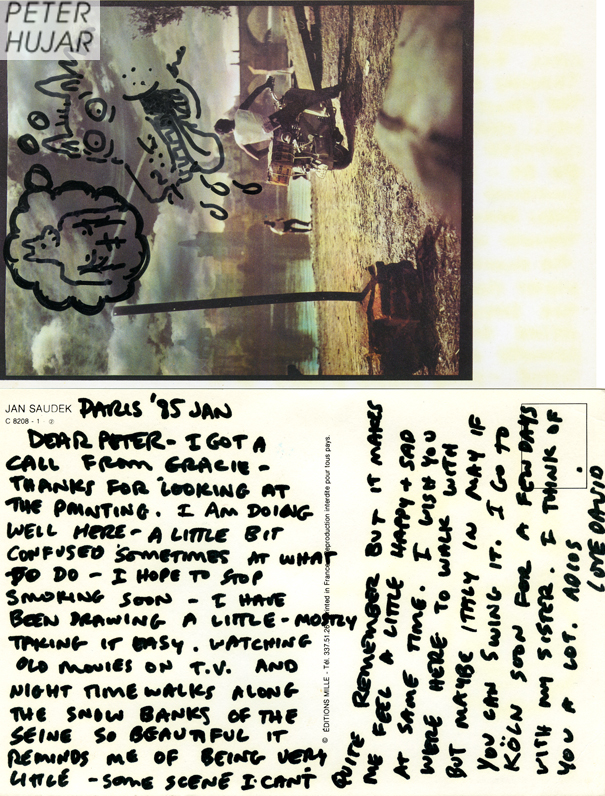 PETER
HUJAR
JAN SAUDEK
C 8208 - 1 ②
PARIS '85 JAN
DEAR PETER - I GOT A
CALL FROM GRACIE -
THANKS FOR LOOKING AT
THE PAINTING. I AM DOING
WELL HERE - A LITTLE BIT
CONFUSED SOMETIMES AT WHAT
TO DO - I HOPE TO STOP
SMOKING SOON - I HAVE
BEEN DRAWING A LITTLE - MOSTLY
TAKING IT EASY. WATCHING
OLD MOVIES ON T.V. AND
NIGHT TIME WALKS ALONG
THE SNOW BANKS OF THE
SEINE SO BEAUTIFUL IT
REMINDS ME OF BEING VERY
LITTLE - SOME SCENE I CAN'T
© ÉDITIONS MILLE - Tél. 337.51.26 Printed in France. Reproduction interdite pour tous pays.
QUITE REMEMBER BUT IT MAKES
ME FEEL A LITTLE HAPPY + SAD
AT SAME TIME. I WISH YOU
WERE HERE TO WALK WITH
BUT MAYBE ITALY IN MAY IF
YOU CAN SWING IT. I GO TO
KÖLN SOON FOR A FEW DAYS
WITH MY SISTER. I THINK OF
YOU A LOT. ADIOS
LOVE DAVID